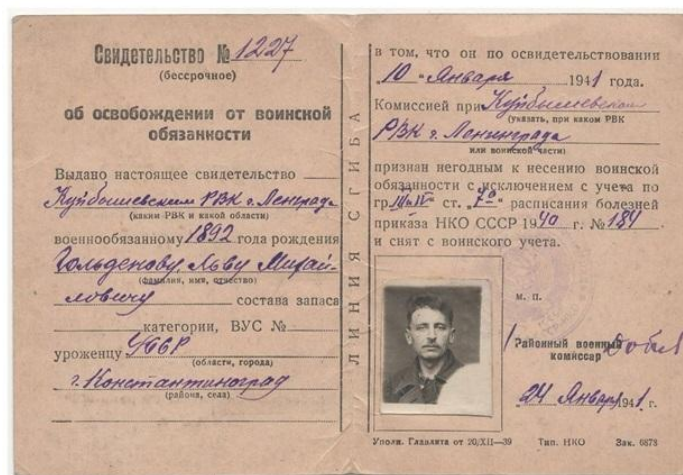 Свидетельство № 1227
(бессрочное)
об освобождении от воинской
обязанности
Выдано настоящее свидетельство
Куйбышевским РВК г. Ленграда
(каким РВК и какой области)
военнообязанному 1892 года рождения
Гольденову Льву Михай-
(фамилия, имя, отчество)
ловичу состава запаса
категории, ВУС №
уроженцу УССР
(области, города)
г. Константиноград
(района, села)
ЛИНИЯ СГИБА
в том, что он по освидетельствовании
„10" Января 1941 года.
Комиссией при Куйбышевском
(указать, при каком РВК
РВК г. Ленинграда
или воинской части)
признан негодным к несению воинской
обязанности с исключением с учета по
гр. III и IV ст. расписания болезней
приказа НКО СССР 1940 г. № 184
и снят с воинского учета.
м. п.
Районный военный
комиссар
„24 Января 1941 г.
Уполн. Главлита от 20/XII—39 Тип. НКО Зак. 6878